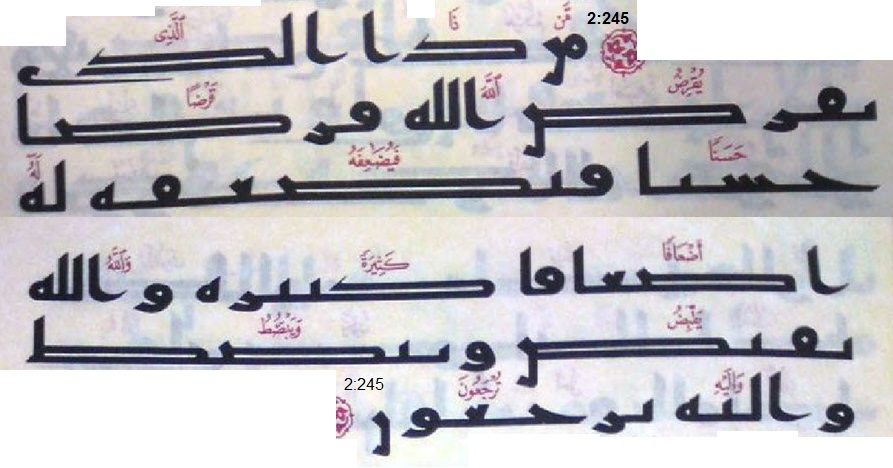 2:245 مَّن ذَا ٱلَّذِى
من ذا الذى
يُقْرِضُ ٱللَّهَ قَرْضًا
يقرض الله قرضا
حَسَنًا فَيُضَٰعِفَهُۥ لَهُۥٓ
حسنا فيضعفه له
أَضْعَافًا كَثِيرَةً وَٱللَّهُ
اضعافا كثيره والله
يَقْبِضُ وَيَبْصُۜطُ
يقبض ويبصط
وَإِلَيْهِ تُرْجَعُونَ 2:245
واليه ترجعون